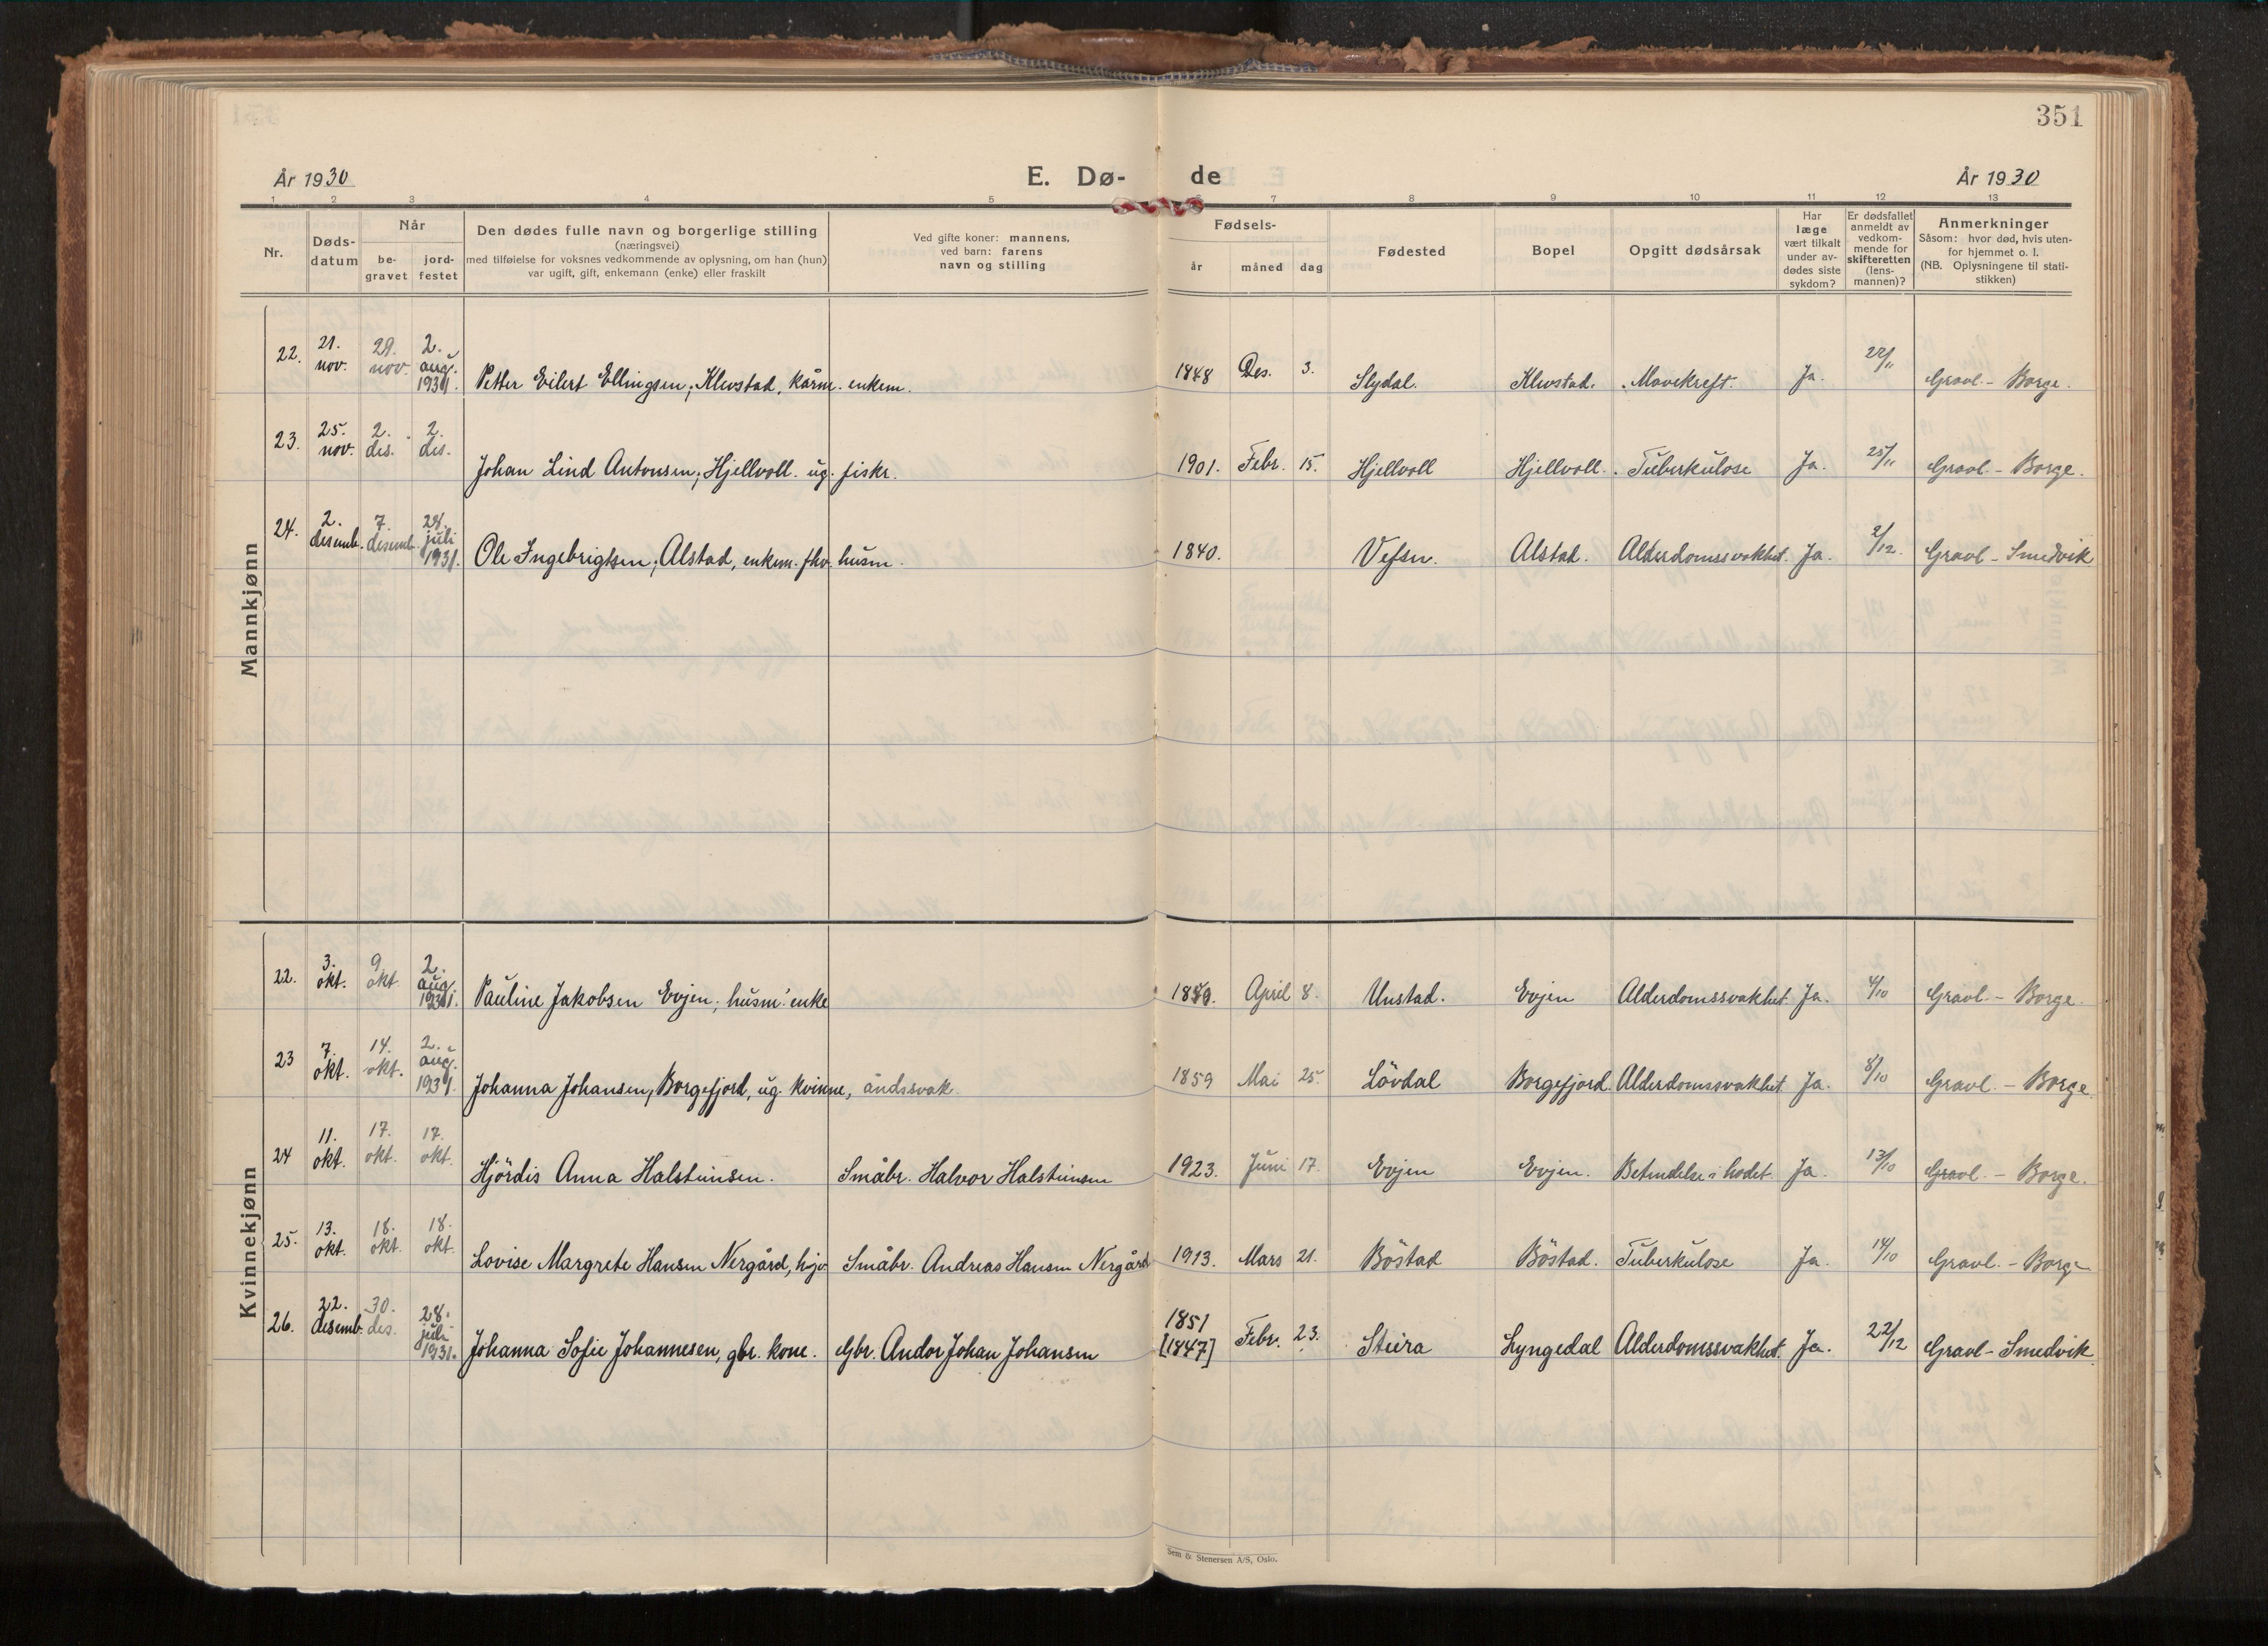 351
År 1930
E. Dø-
de
År 1930
1 2 3 4 5 6 7 8 9 10 11 12 13
Nr.
Døds-
datum
Når
be-
gravet
jord-
festet
Den dødes fulle navn og borgerlige stilling
(næringsvei)
med tilføielse for voksnes vedkommende av oplysning, om han (hun)
var ugift, gift, enkemann (enke) eller fraskilt
Ved gifte koner: mannens,
ved barn: farens
navn og stilling
Fødsels-
år måned dag
Fødested
Bopel
Opgitt dødsårsak
Har
læge
vært tilkalt
under av-
dødes siste
sykdom?
Er dødsfallet
anmeldt av
vedkom-
mende for
skifteretten
(lens-
mannen)?
Anmerkninger
Såsom: hvor død, hvis uten-
for hjemmet o. l.
(NB. Oplysningene til stati-
stikken)
Mannkjønn
22. 21. nov. 29. nov. 2. aug. 1931. Petter Eilert Ellingsen; Klevstad, kårm. enkem. 1848 Des. 3. Slydal. Klevstad. Mavekreft. Ja. 22/11 Gravl. - Borge.
23. 25. nov. 2. des. 2. des. Johan Lind Antonsen; Hjellvoll. ug. fiskr. 1901. Febr. 15. Hjellvoll Hjellvoll. Tuberkulose Ja. 25/11 Gravl. - Borge.
24. 2. desemb. 7. desemb. 28. juli 1931. Ole Ingebrigtsen; Alstad, enkem. fhv. husm. 1840. Vefsn. Alstad. Alderdomssvakhet. Ja. 2/12. Gravl. - Smedvik
Kvinnekjønn
22. 3. okt. 9 okt. 2. aug. 1931. Pauline Jakobsen Evjen; husm.' enke April 8. Unstad. Evjen Alderdomssvakhet. Ja. 4/10 Gravl. - Borge.
23 7. okt. 14. okt. 2. aug. 1931. Johanna Johansen, Borgefjord, ug. kvinne, åndssvak. 1859 Mai 25. Lövdal Borgefjord Alderdomssvakhet Ja. 8/10 Gravl. - Borge.
24 11. okt. 17. okt. 17. okt. Hjördis Anna Halsteinsen. Småbr. Halvor Halsteinsen 1923. Juni 17. Evjen Evjen. Betendelse i hodet. Ja. 13/10 Gravl. - Borge.
25. 13. okt. 18. okt. 18. okt. Lovise Margrete Hansen Nergård, hjv Småbr. Andreas Hansen Nergård 1913. Mars 21. Böstad Böstad. Tuberkulose Ja. 14/10 Gravl. - Borge
26. 22. desemb. 30. des. 28. juli 1931. Johanna Sofie Johannesen, gbr. kone. Gbr. Andor Johan Johansen 1851 [1847] Febr. 23. Steira Lyngedal Alderdomssvakhet. Ja. 22/12 Gravl - Smedvik
Sem & Stenersen A/S, Oslo.